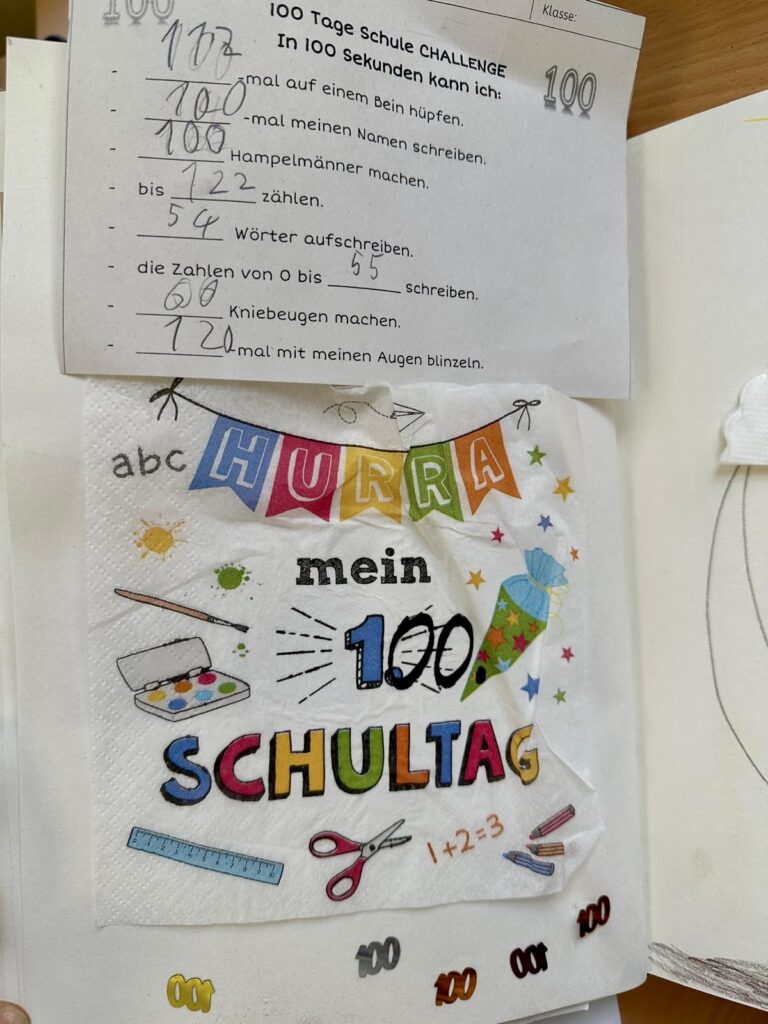 100
Klasse:
100 Tage Schule CHALLENGE
In 100 Sekunden kann ich:
100
- 117 -mal auf einem Bein hüpfen.
- 100 -mal meinen Namen schreiben.
- 100 Hampelmänner machen.
- bis 122 zählen.
- 54 Wörter aufschreiben.
- die Zahlen von 0 bis 55 schreiben.
- 60 Kniebeugen machen.
- 120 -mal mit meinen Augen blinzeln.
abc HURRA
mein
100.
SCHULTAG
0 1 2 3 4 5 6 7 8 9 10
1+2=3
100
100
100
100
100